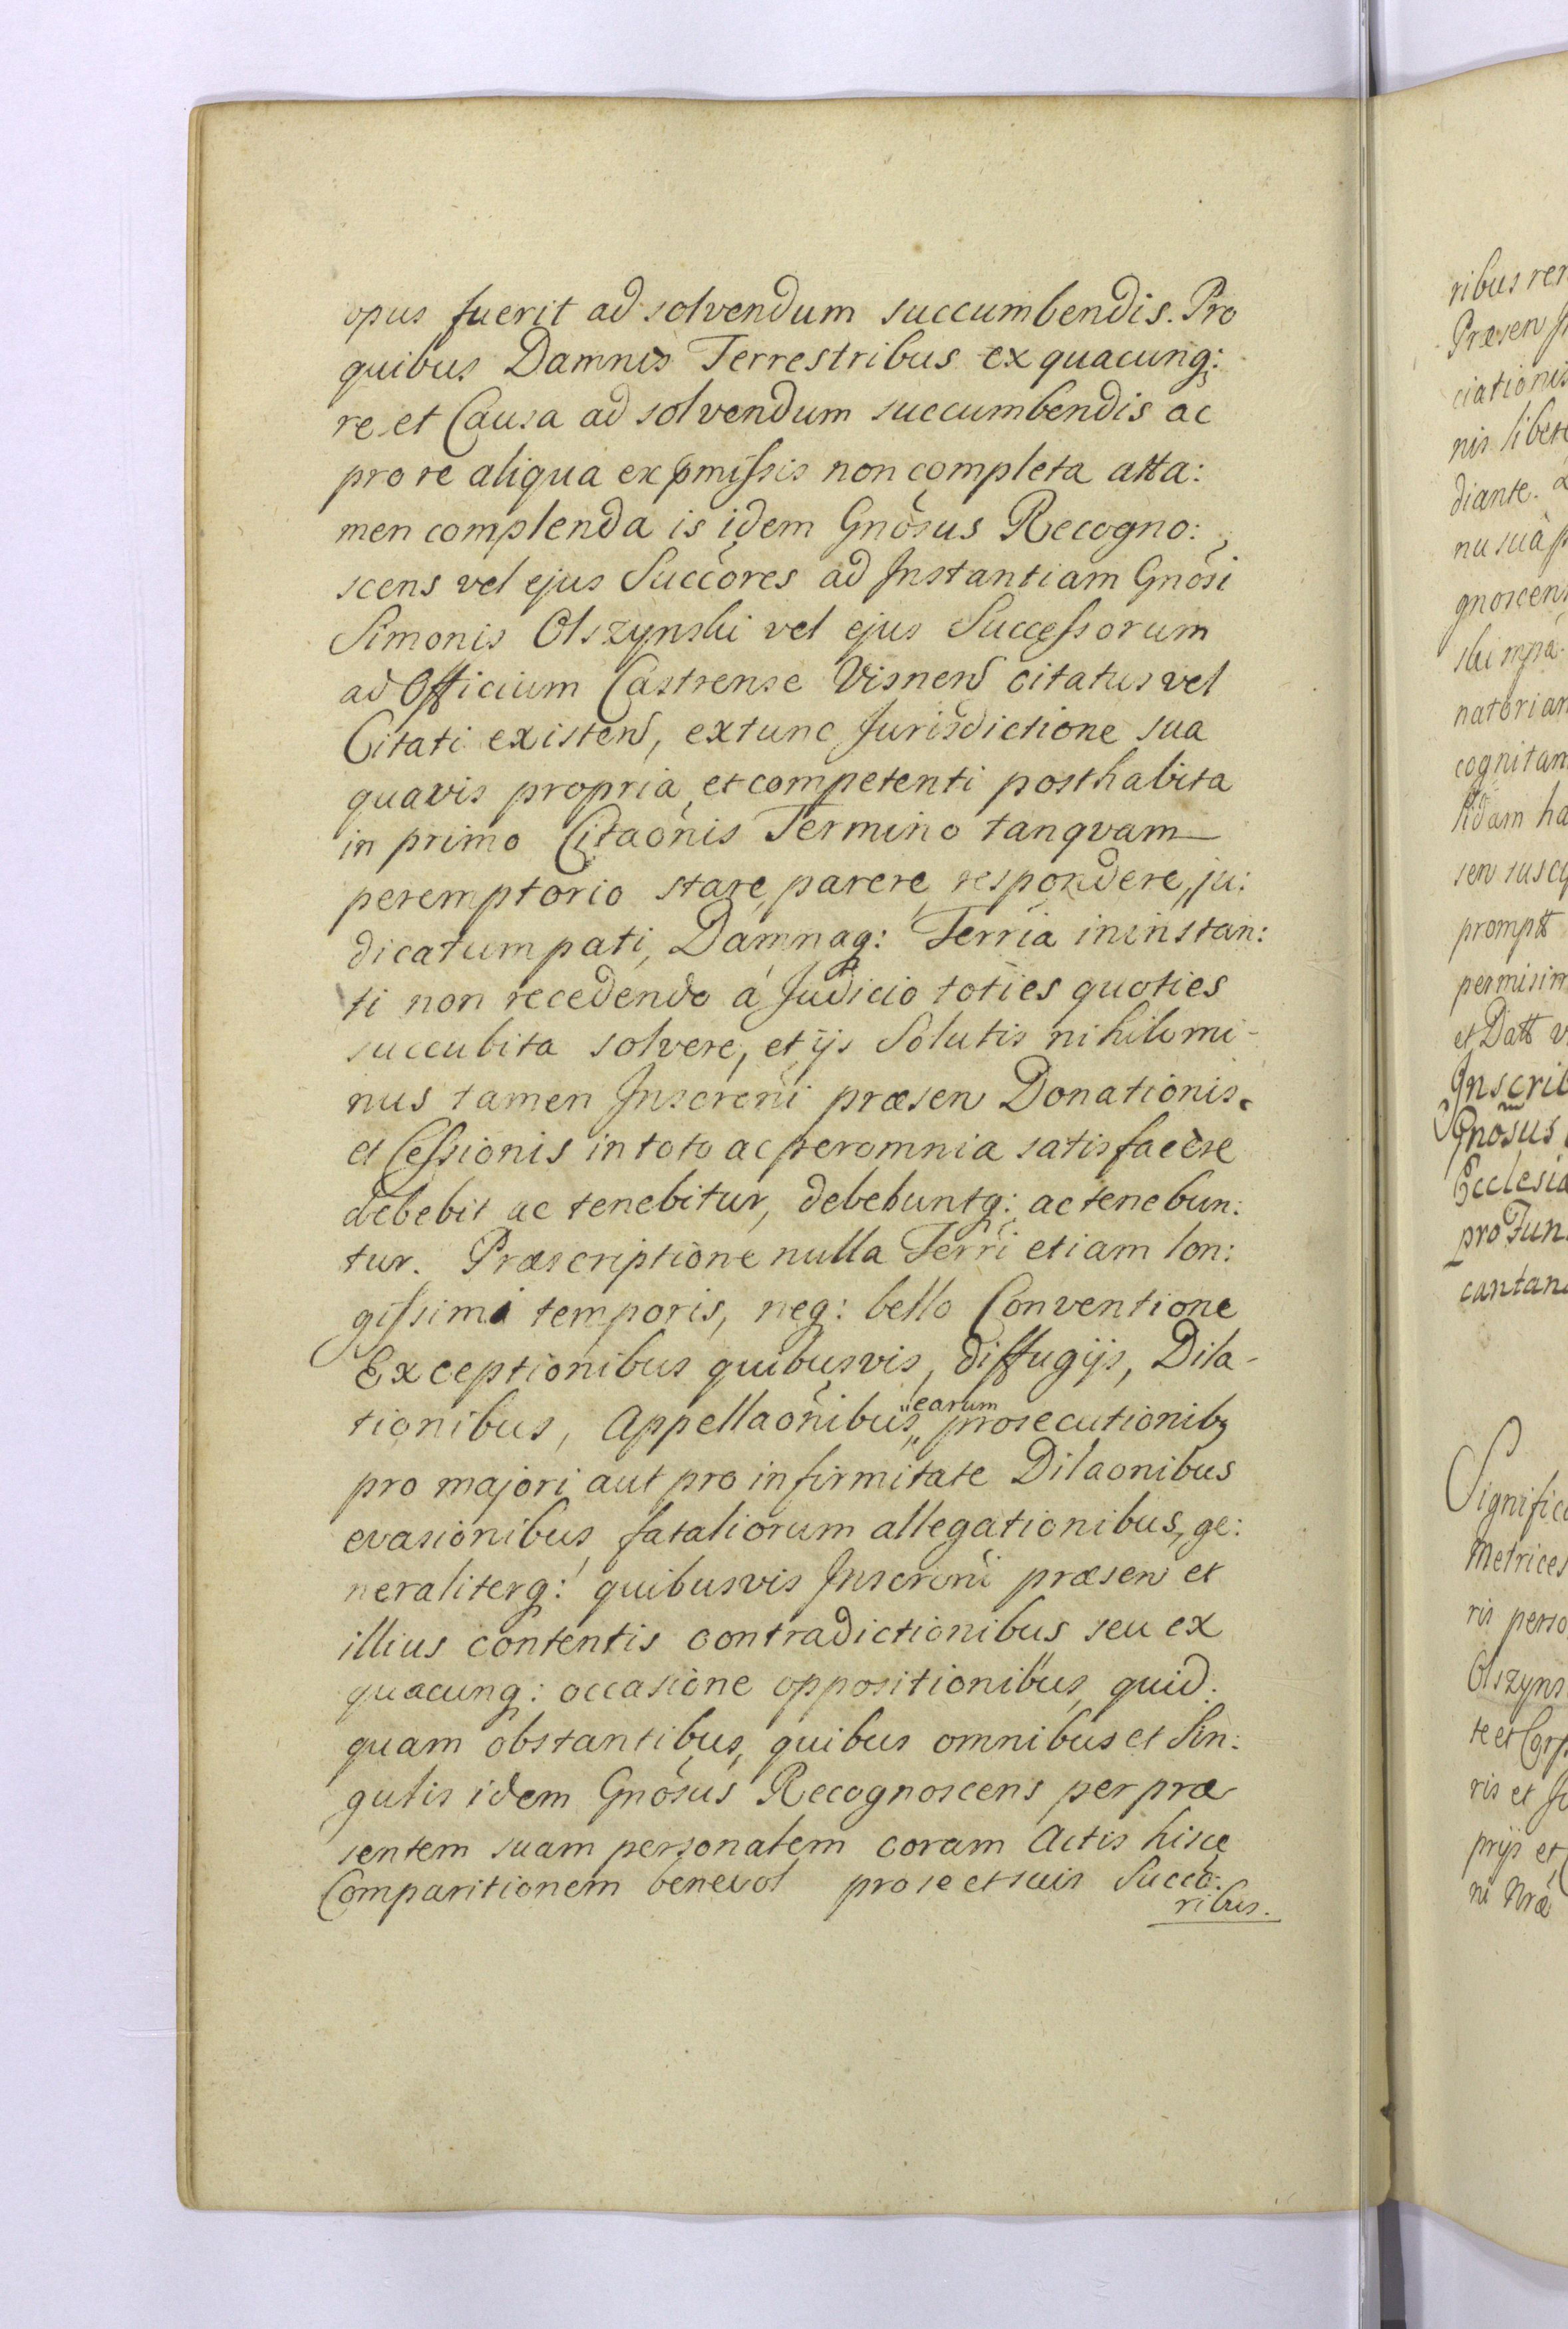 opus fuerit ad solvendum succumbendis. Pro
quibus Damnis Terrestribus ex quacunq:
re et Causa ad solvendum succumbendis ac
pro re aliqua ex pmissis non completa atta:
men complenda is idem Gnosus Recogno:
scens vel ejus Succores ad Instantiam Gnosi
Simonis Olszynski vel ejus Successorum
ad Officium Castrense Visnen citatus vel
Citati existen, extunc Jurisdictione sua
quavis propria et competenti posthabita
in primo Citaonis Termino tanqvam
peremptorio stare, parere, respondere, ju:
dicatum pati, Damnaq: Terria in instan:
ti non recedendo á Judicio toties quoties
succubita solvere, et ijs Solutis nihilomi-
nus tamen Inscreni præsen Donationis
et Cessionis in toto ac per omnia satisfacere
debebit ac tenebitur, debebuntq: ac tenebun:
tur. Præscriptione nulla Terri etiam lon:
gissimi temporis, neq: bello Conventione
Exceptionibus quibusvis, diffugijs, Dila-
tionibus, Appellaonibus, earum prosecutionibq
pro majori aut pro infirmitate Dilaonibus
evasionibus, fataliorum allegationibus, ge:
neraliterq: quibusvis Inscroni præsen et
illius contentis contradictionibus seu ex
quacunq: occasione oppositionibus, quid:
quam obstantibus, quibus omnibus et Sin:
gulis idem Gnosus Recognoscens per præ
sentem suam personalem coram Actis hisce
Comparitionem benevol pro se et suis Succo:
ribus.
ribus
Præsen
ciationis
nis libere
diante.
nu suâ
gnoscen
natorian
cognitam
prompt
permisim
et Datt
Inscrib
Gnosus
Ecclesia
pro Fun
cantan
Signific
Metrices
ris perso
Olszyns
te et Corp
ris et
prijs et
ni Nræ